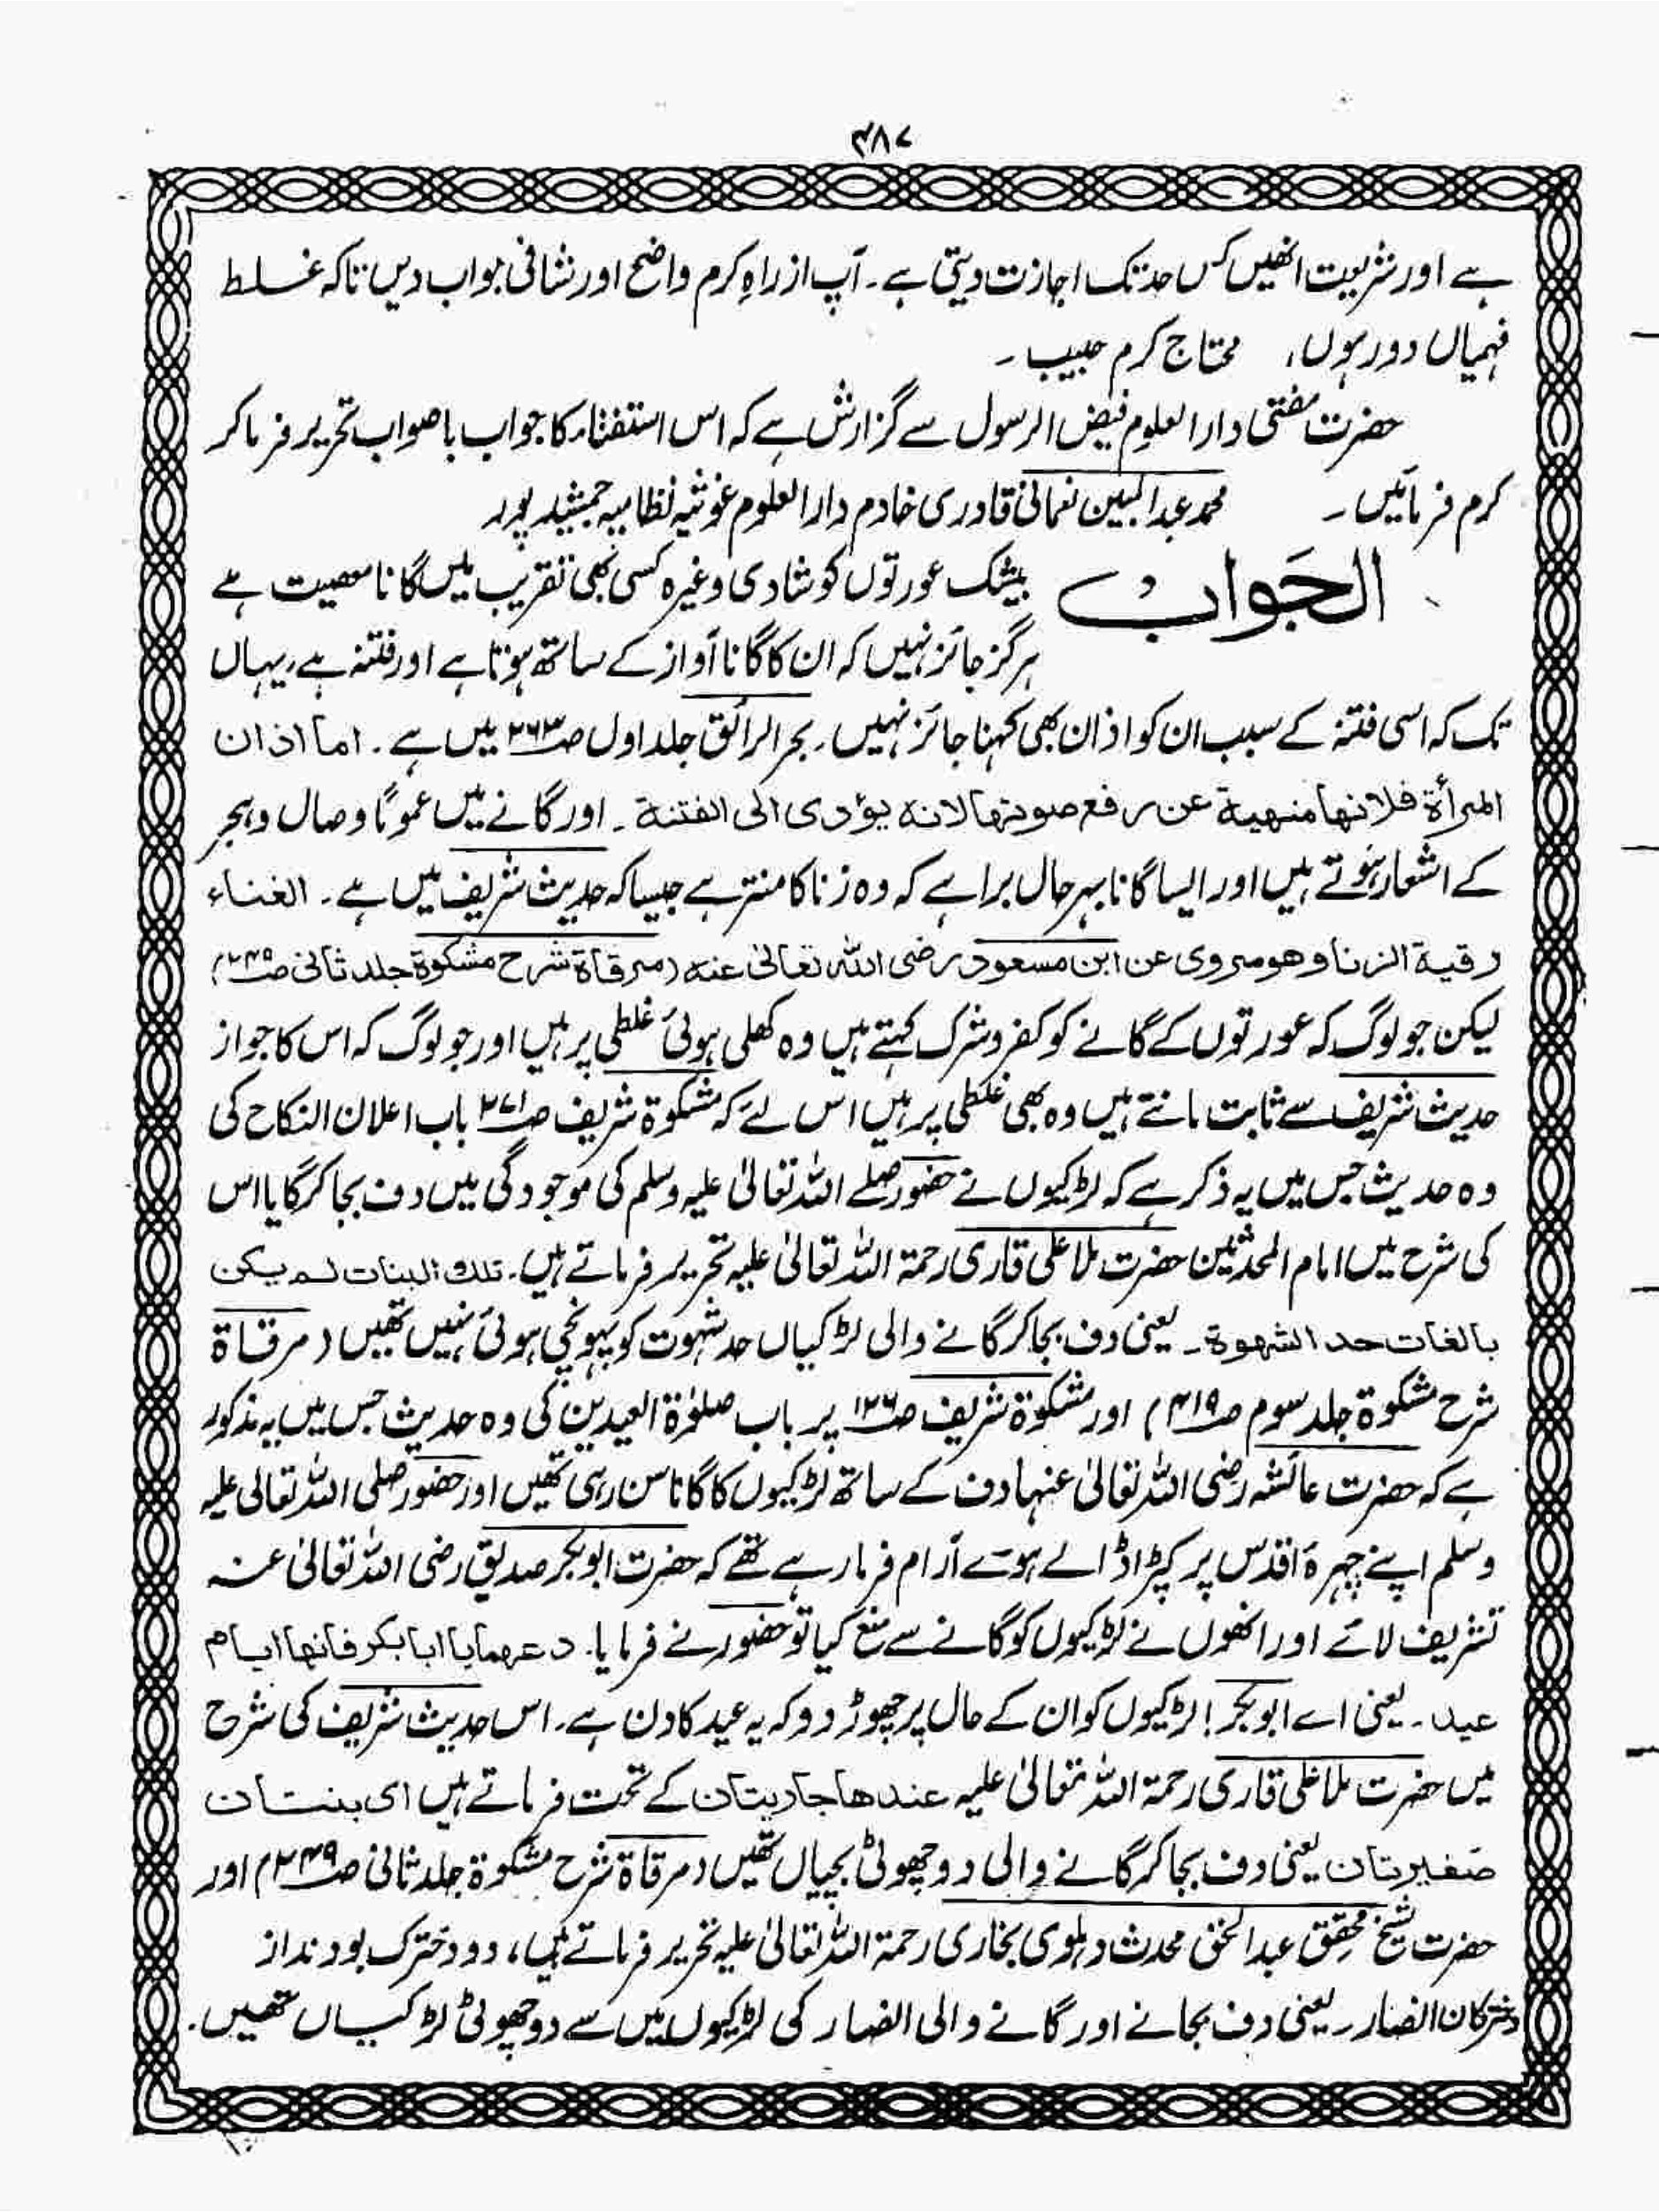 ۴۸۷
ہے اور شریعت انھیں کس حد تک اجازت دیتی ہے۔ آپ از راہِ کرم واضح اور شافی جواب دیں تاکہ غلط
فہمیاں دور ہوں، محتاج کرم حبیب۔
حضرت مفتی دارالعلوم فیض الرسول سے گزارش ہے کہ اس استفتاء کا جواب باصواب تحریر فرما کر
کرم فرمائیں۔ محمد عبدالمبین نعمانی قادری خادم دارالعلوم غوثیہ نظامیہ جمشید پور
الجواب بیشک عورتوں کو شادی وغیرہ کسی بھی تقریب میں گانا معصیت ہے
ہرگز جائز نہیں کہ ان کا گانا آواز کے ساتھ ہوتا ہے اور فتنہ ہے، یہاں
تک کہ اسی فتنہ کے سبب ان کو اذان بھی کہنا جائز نہیں۔ بحرالرائق جلد اول ص۲۶۳ میں ہے۔ اما اذان
المرأة فلانها منهية عن رفع صوتها لانه يؤدى الى الفتنة۔ اور گانے میں عموماً وصال و ہجر
کے اشعار ہوتے ہیں اور ایسا گانا بہر حال برا ہے کہ وہ زنا کا منتر ہے جیسا کہ حدیث شریف میں ہے۔ الغناء
رقية الزنا وهو مروى عن ابن مسعود رضى الله تعالىٰ عنه (مرقاة شرح مشكوة جلد ثانى ص۲۴۹)
لیکن جو لوگ کہ عورتوں کے گانے کو کفر و شرک کہتے ہیں وہ کھلی ہوئی غلطی پر ہیں اور جو لوگ کہ اس کا جواز
حدیث شریف سے ثابت مانتے ہیں وہ بھی غلطی پر ہیں اس لئے کہ مشکوٰة شریف ص۲۷۱ باب اعلان النکاح کی
وہ حدیث جس میں یہ ذکر ہے کہ لڑکیوں نے حضور صلے اللہ تعالیٰ علیہ وسلم کی موجودگی میں دف بجا کر گایا اس
کی شرح میں امام المحدثین حضرت ملا علی قاری رحمۃ اللہ تعالیٰ علیہ تحریر فرماتے ہیں۔ تلك البنات لم يكن
بالغات حد الشهوة۔ یعنی دف بجا کر گانے والی لڑکیاں حد شہوت کو پہونچی ہوئی نہیں تھیں (مرقاة
شرح مشکوٰة جلد سوم ص۴۱۹) اور مشکوٰة شریف ص۱۲۶ پر باب صلوٰة العیدین کی وہ حدیث جس میں یہ مذکور
ہے کہ حضرت عائشہ رضی اللہ تعالیٰ عنہا دف کے ساتھ لڑکیوں کا گانا سن رہی تھیں اور حضور صلی اللہ تعالیٰ علیہ
وسلم اپنے چہرۂ اقدس پر کپڑا ڈالے ہوئے آرام فرما رہے تھے کہ حضرت ابوبکر صدیق رضی اللہ تعالیٰ عنہ
تشریف لائے اور انھوں نے لڑکیوں کو گانے سے منع کیا تو حضور نے فرمایا۔ دعهما يا ابا بكر فانها ايام
عيد۔ یعنی اے ابوبکر! لڑکیوں کو ان کے حال پر چھوڑ دو کہ یہ عید کا دن ہے۔ اس حدیث شریف کی شرح
میں حضرت ملا علی قاری رحمۃ اللہ تعالیٰ علیہ عندها جاريتان کے تحت فرماتے ہیں اى بنتان
صغيرتان یعنی دف بجا کر گانے والی دو چھوٹی بچیاں تھیں (مرقاة شرح مشکوٰة جلد ثانی ص۲۴۹) اور
حضرت شیخ محقق عبدالحق محدث دہلوی بخاری رحمۃ اللہ تعالیٰ علیہ تحریر فرماتے ہیں، دو دخترک بودند از
دخترکان انصار۔ یعنی دف بجانے اور گانے والی انصار کی لڑکیوں میں سے دو چھوٹی لڑکیاں تھیں۔